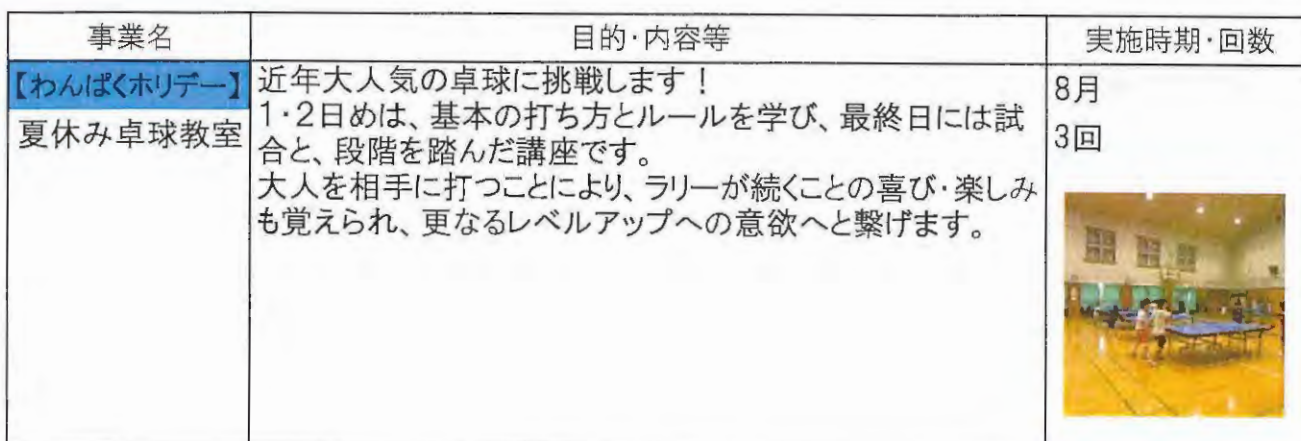 事業名
目的・内容等
実施時期・回数
【わんぱくホリデー】
夏休み卓球教室
近年大人気の卓球に挑戦します！
1・2日めは、基本の打ち方とルールを学び、最終日には試
合と、段階を踏んだ講座です。
大人を相手に打つことにより、ラリーが続くことの喜び・楽しみ
も覚えられ、更なるレベルアップへの意欲へと繋げます。
8月
3回